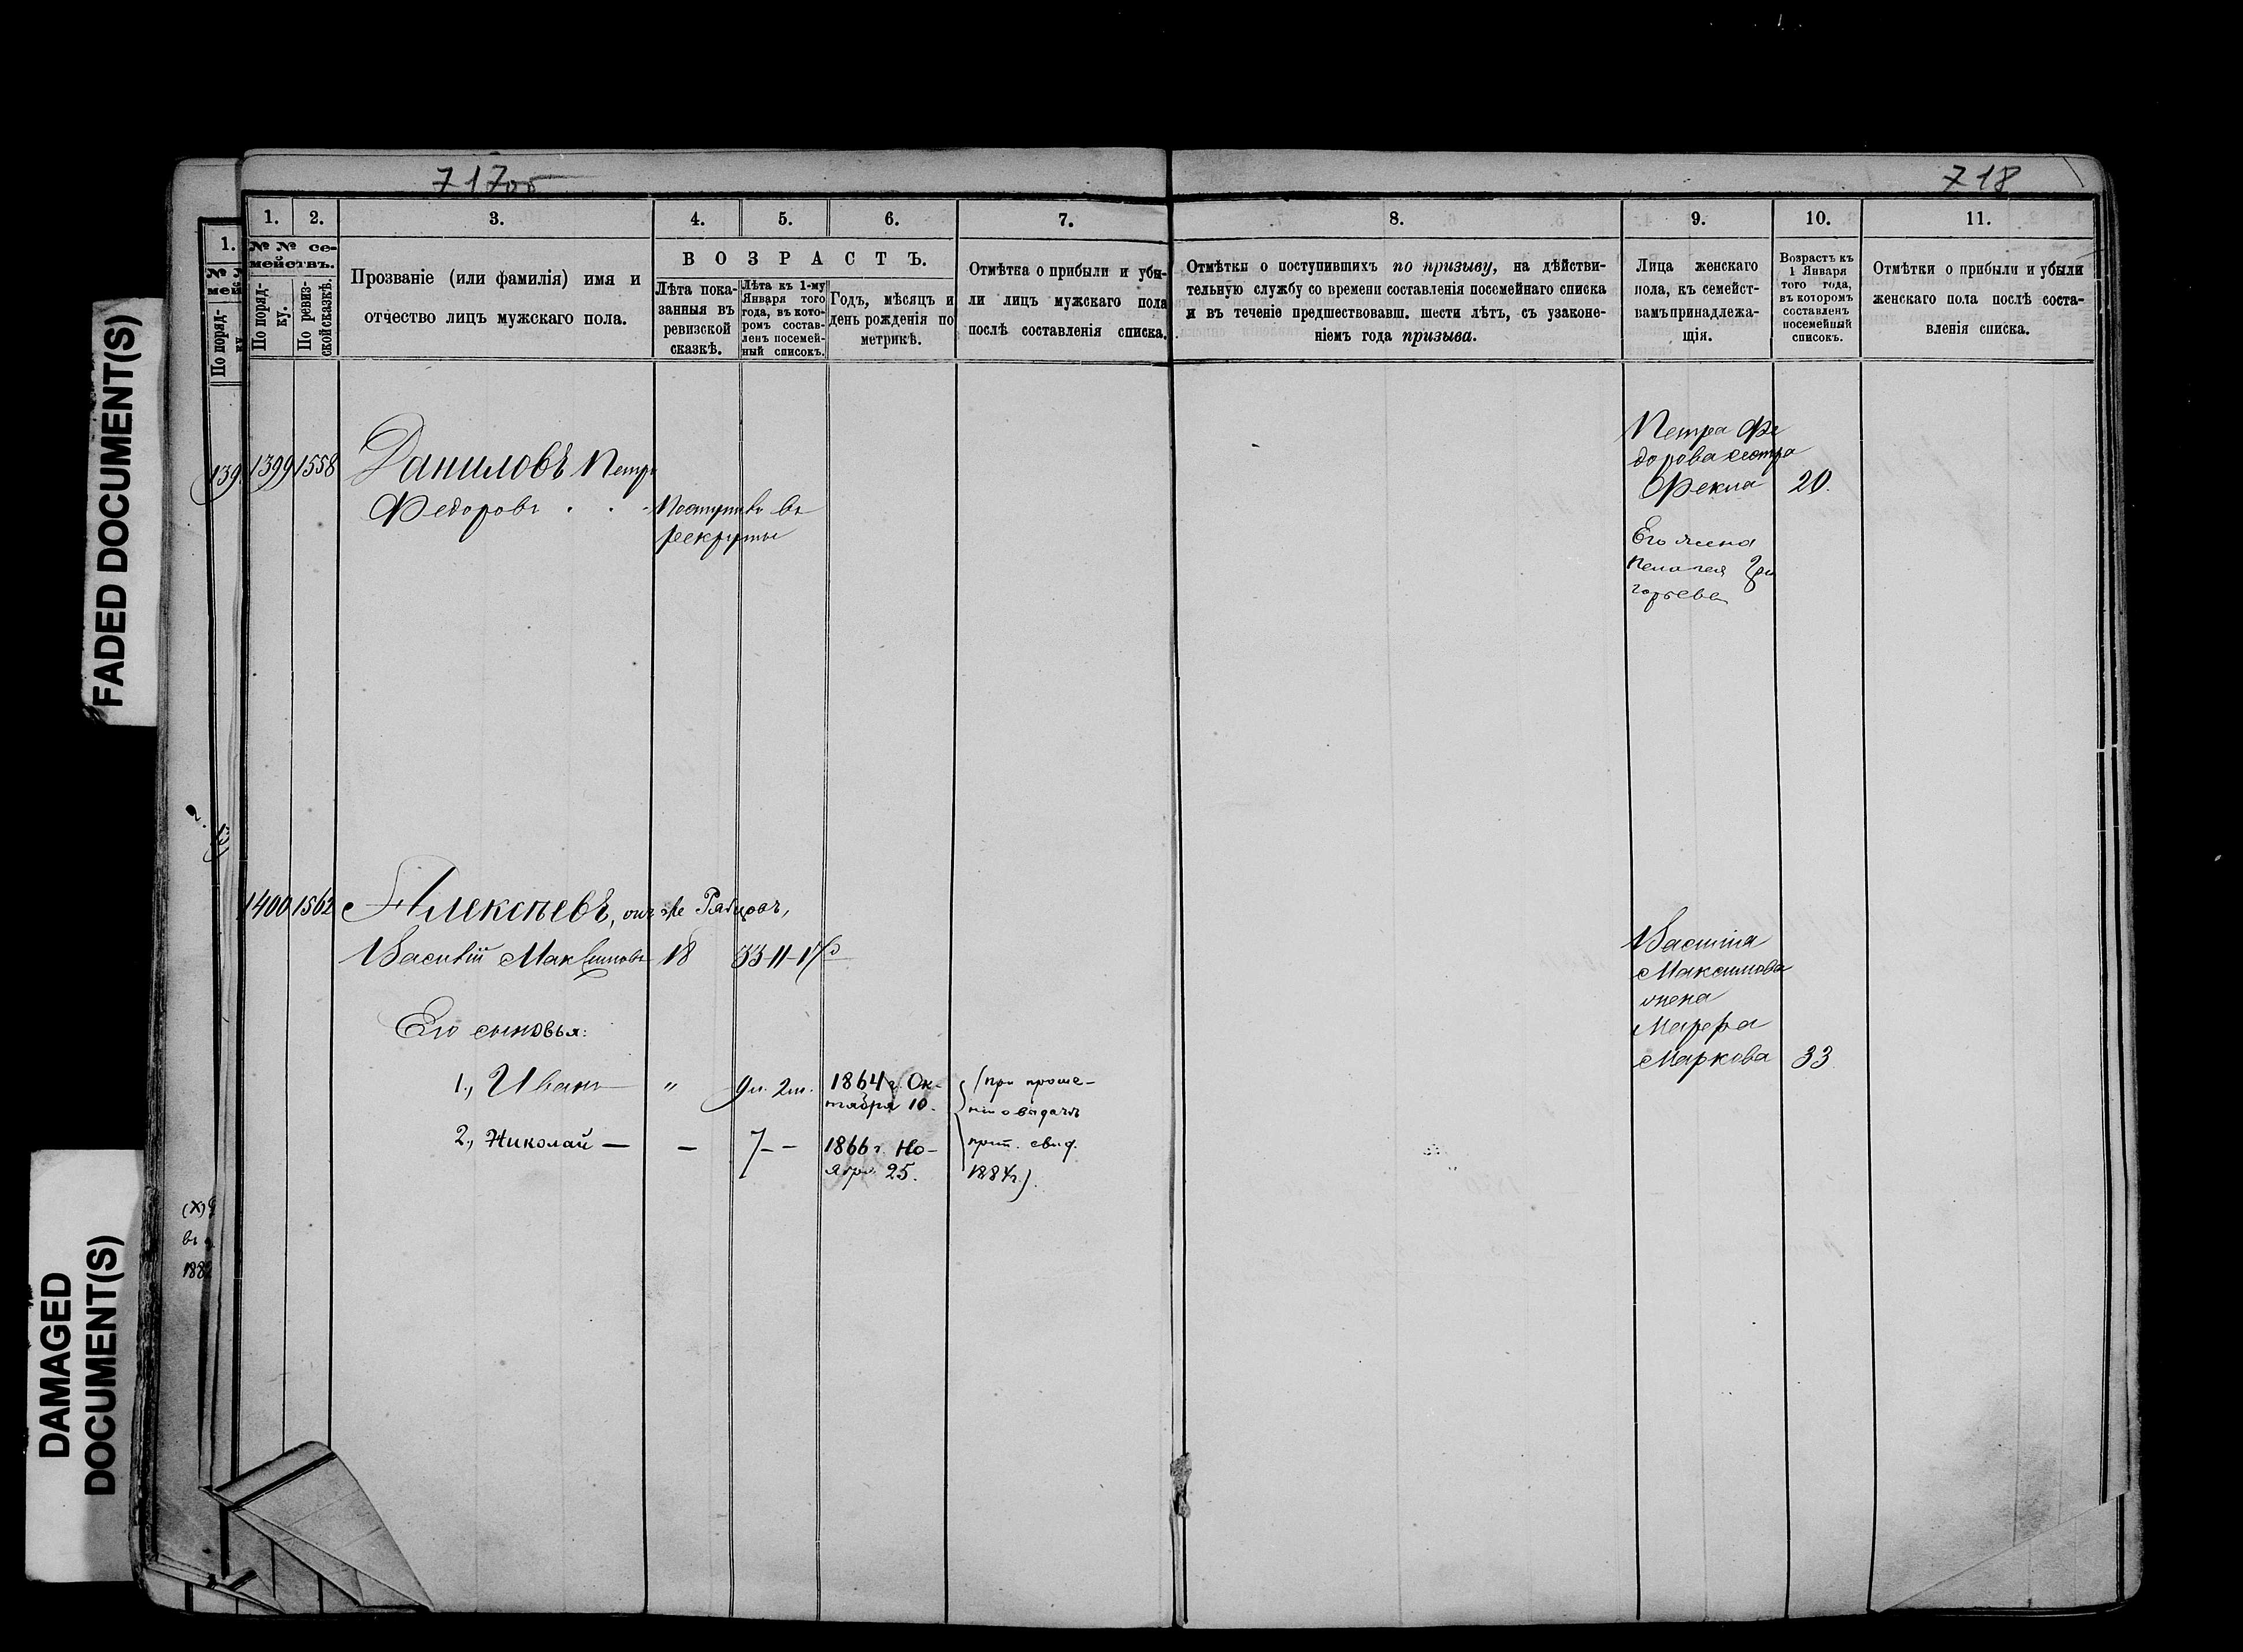 717об
718
FADED DOCUMENT(S)
DAMAGED
DOCUMENT(S)
1.
2.
3.
4.
5.
6.
7.
8.
9.
10.
11.
№ № се-
мействъ.
По поряд-
ку.
По ревиз-
ской сказкѣ.
Прозваніе (или фамилія) имя и
отчество лицъ мужскаго пола.
ВОЗРАСТЪ.
Лѣта пока-
занныя въ
ревизской
сказкѣ.
Лѣта къ 1-му
Января того
года, въ кото-
ромъ состав-
ленъ посемей-
ный списокъ.
Годъ, мѣсяцъ и
день рожденія по
метрикѣ.
Отмѣтка о прибыли и убы-
ли лицъ мужскаго пола
послѣ составленія списка.
Отмѣтки о поступившихъ по призыву, на дѣйстви-
тельную службу со времени составленія посемейнаго списка
и въ теченіе предшествовавш. шести лѣтъ, съ узаконе-
ніемъ года призыва.
Лица женскаго
пола, къ семейст-
вамъ принадлежа-
щія.
Возрастъ къ
1 Января
того года,
въ которомъ
составленъ
посемейный
списокъ.
Отмѣтки о прибыли и убыли
женскаго пола послѣ соста-
вленія списка.
1.
По поряд-
139
1399 1558 Даниловъ Петръ
Федоровъ . . - Поступилъ въ
рекруты
Петра Фе
дорова сестра
Фекла 20.
Его жена
Пелагея Гри
горьева
1400 1562 Алексѣевъ, онъ же Рябцовъ,
Василій Максимовъ 18 33-11-17
Его сыновья:
1., Иванъ — " 9л. 2м. 1864 г. Ок-
тября 10.
2., Николай — — 7 - - 1866 г. Но-
ября 25.
(при проше-
ніи о выдачѣ
прип. свид.
1884г.).
Василія
Максимова
жена
Марфа
Маркова 33
(х)
въ
188